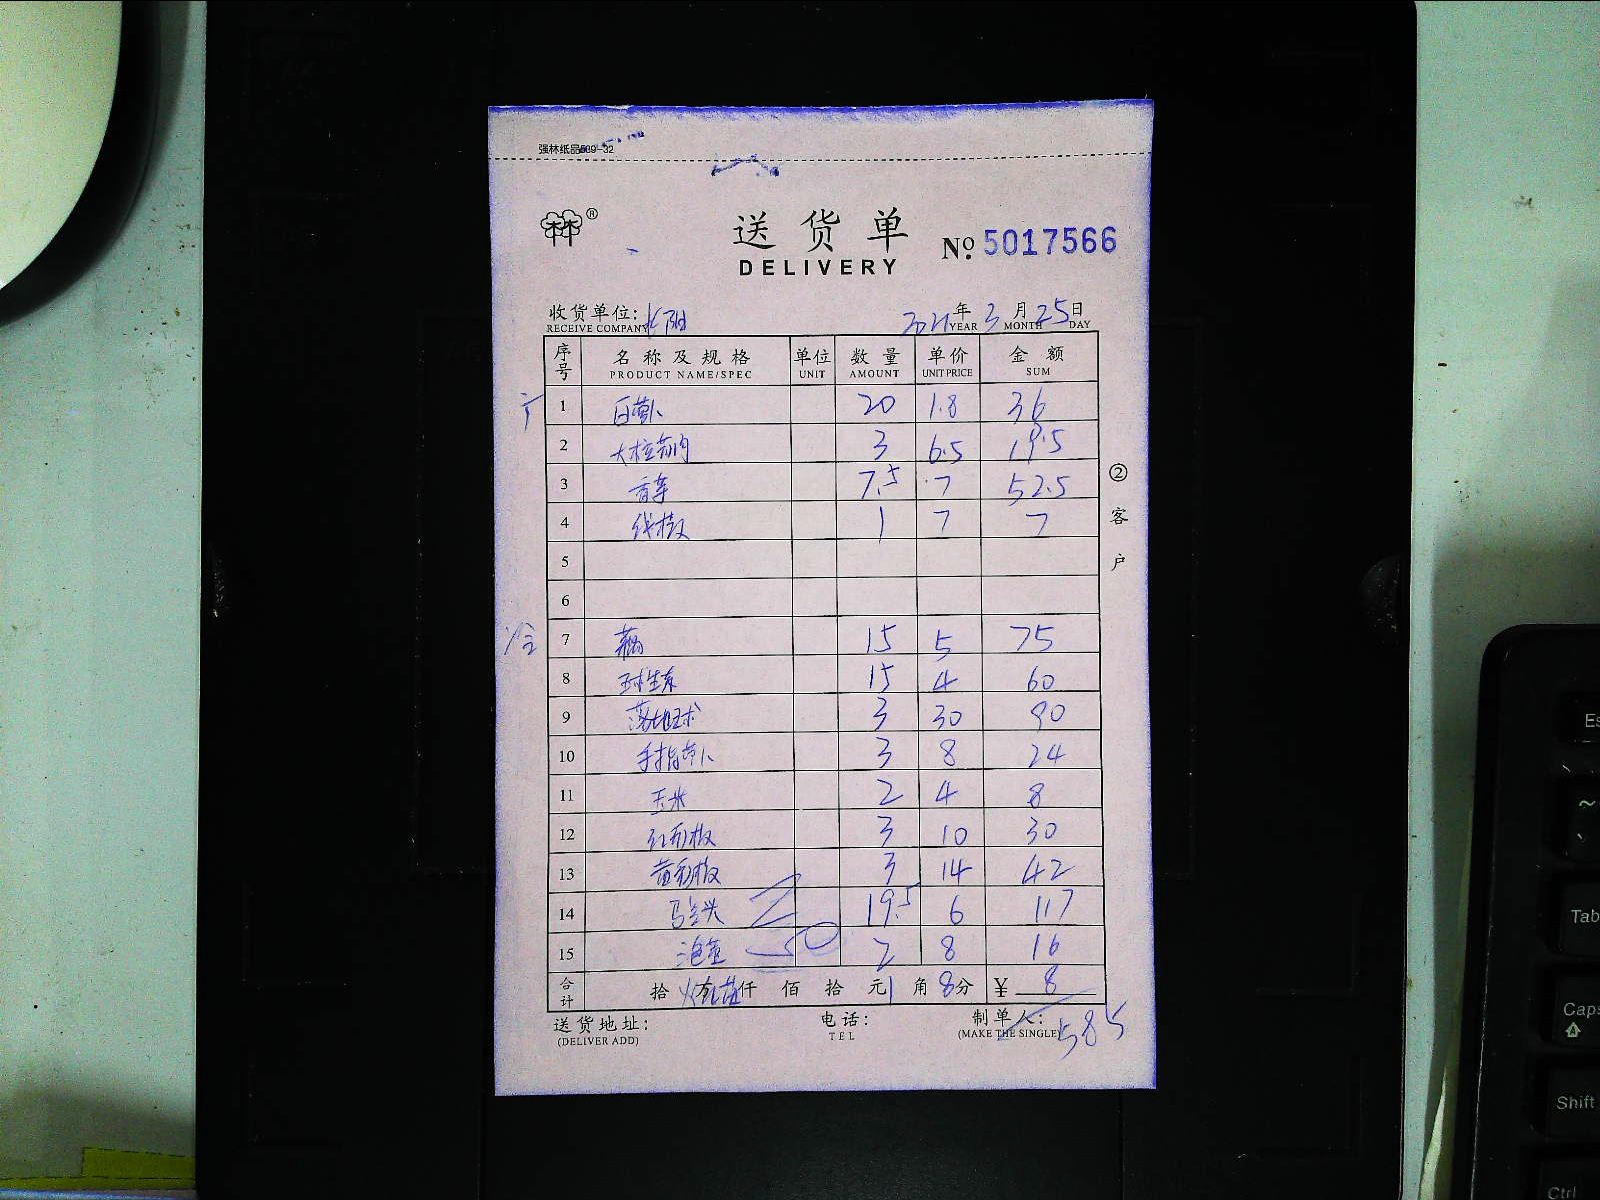 强林纸品509-32
林® 送货单 No. 5017566
DELIVERY
收货单位: 2021年3月25日
RECEIVE COMPANY YEAR MONTH DAY
序号 名称及规格 单位 数量 单价 金额
PRODUCT NAME/SPEC UNIT AMOUNT UNIT PRICE SUM
1 白萝卜 20 1.8 36
2 3 6.5 19.5
3 香芹 7.5 7 52.5
4 线椒 1 7 7
5
6
7 藕 15 5 75
8 球生菜 15 4 60
9 3 30 90
10 手指萝卜 3 8 24
11 玉米 2 4 8
12 红彩椒 3 10 30
13 黄彩椒 3 14 42
14 马兰头 19.5 6 117
15 2 8 16
合计 拾 仟 佰 拾 元 1 角 8 分 ¥ 8
585
送货地址: 电话: 制单人:
(DELIVER ADD) TEL (MAKE THE SINGLE)
② 客户
Es
~
Tab
Caps
Shift
Ctrl